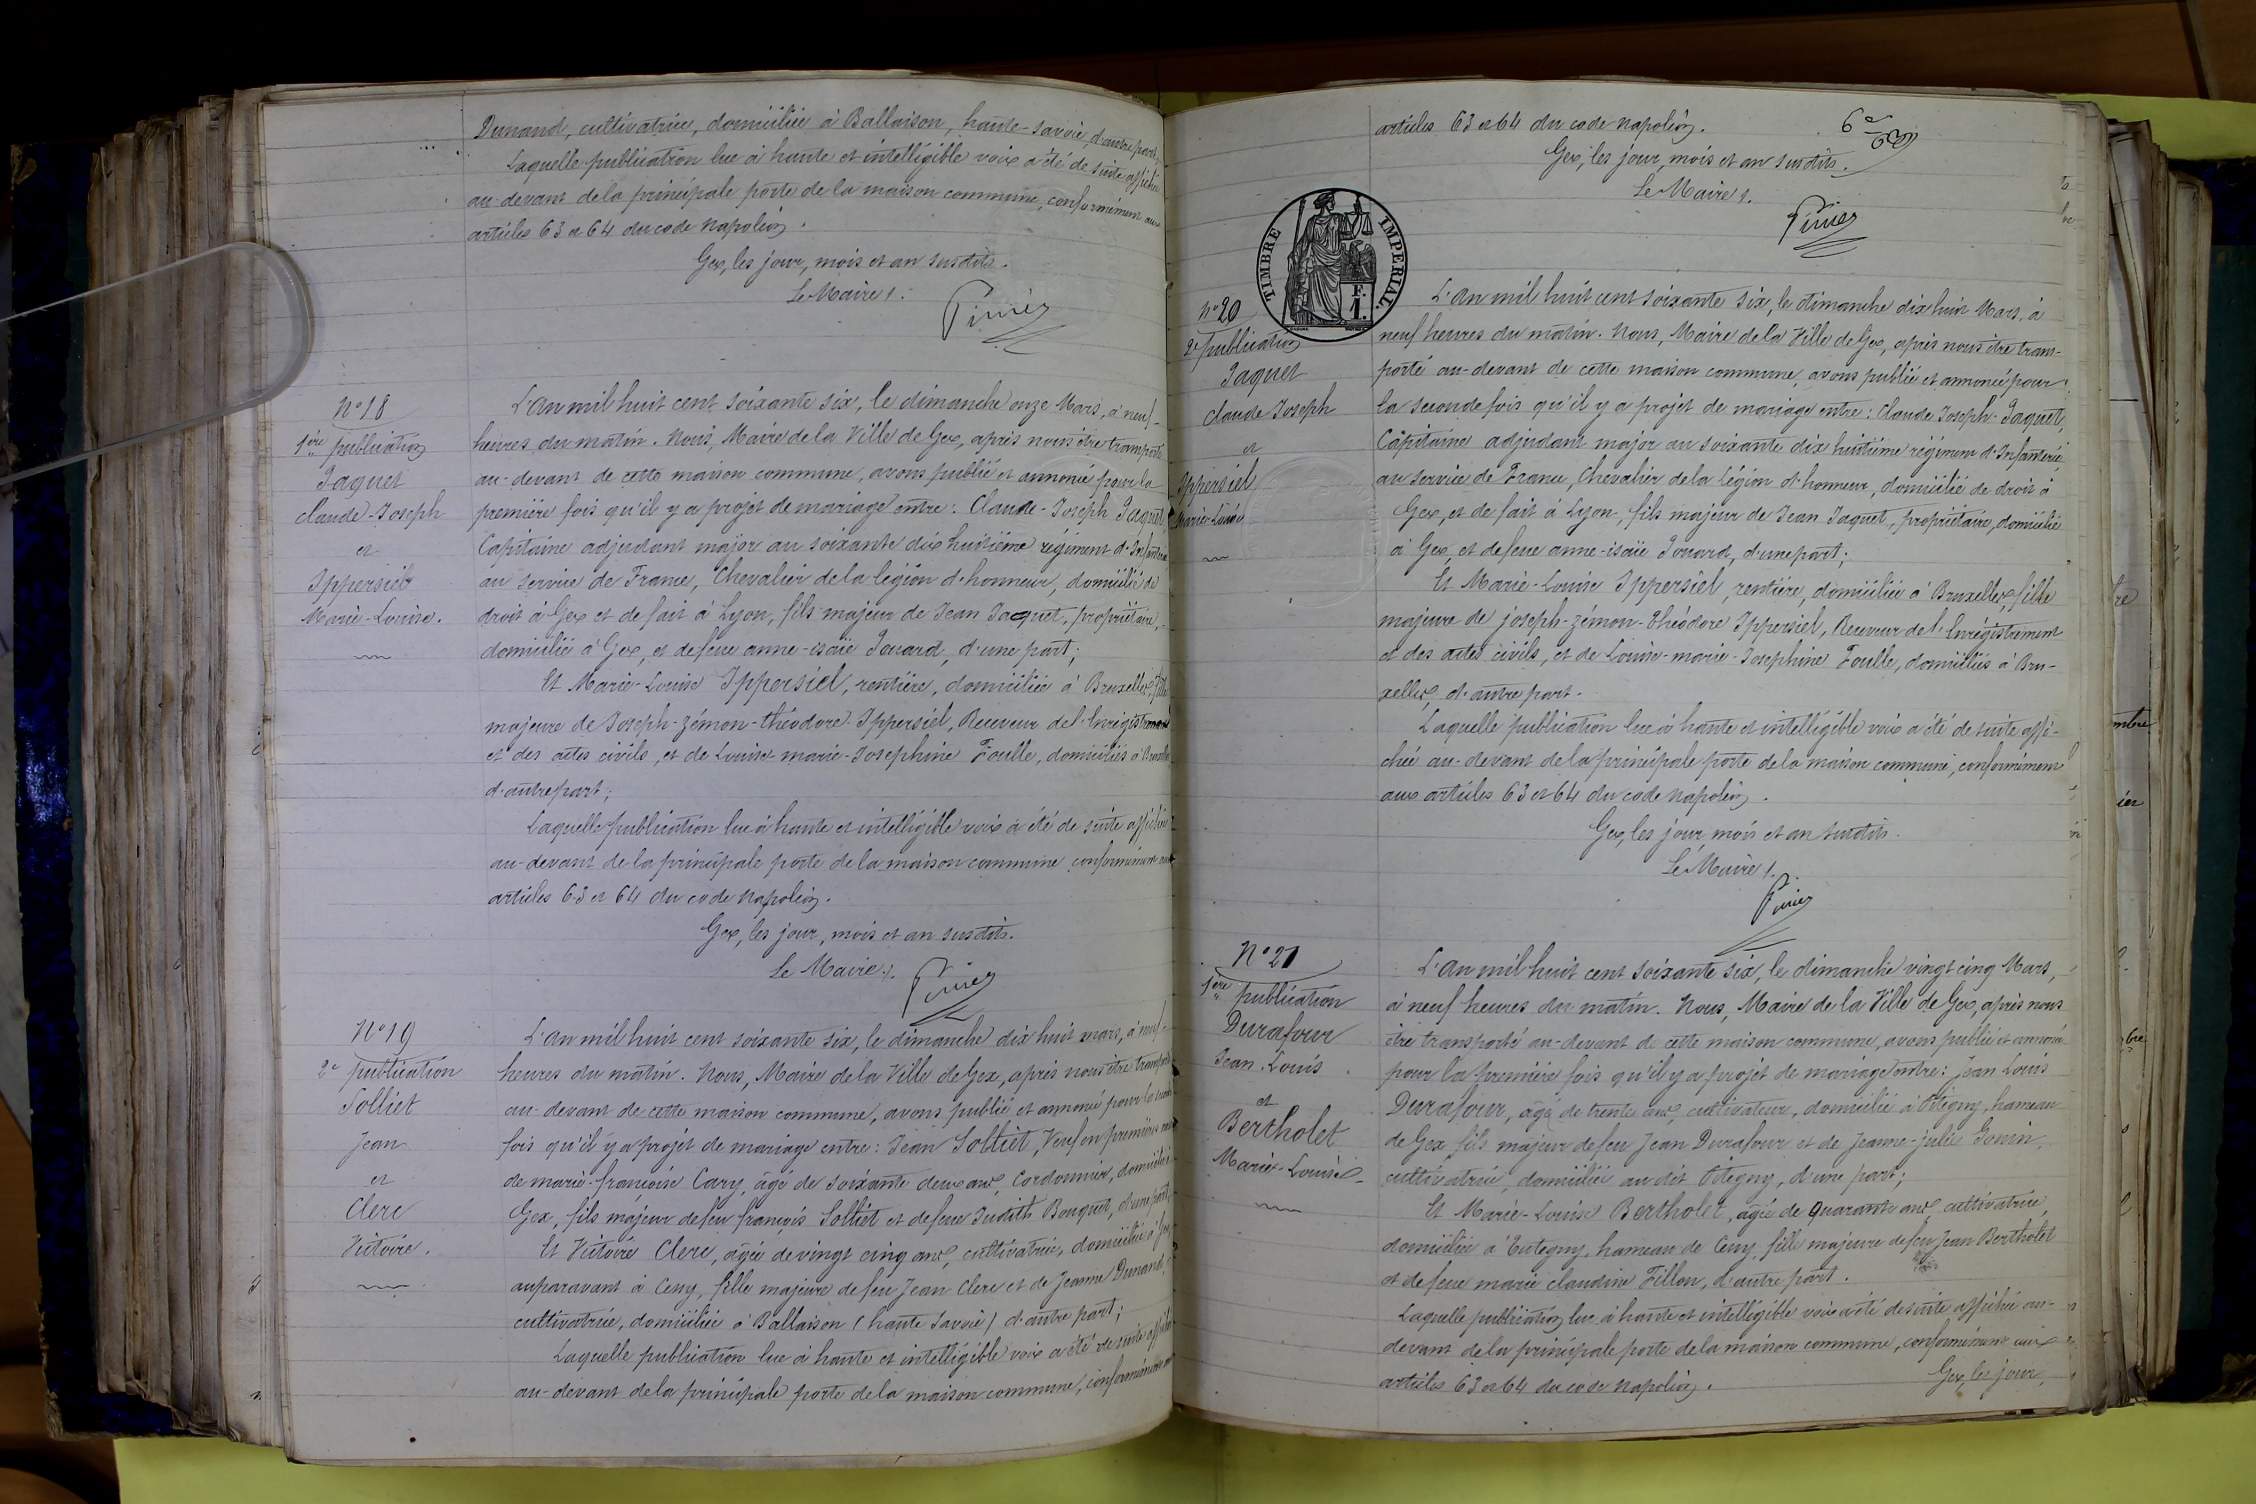 Dunand, cultivatrice, domiciliée à Ballaison, haute-savoie, d'autre part,
Laquelle publication lue à haute et intelligible voix a été de suite affichée
au-devant de la principale porte de la maison commune, conformément aux
articles 63 et 64 du code Napoléon.
Gex, les jour, mois et an susdits.
Le Maire
N° 18
1ère publication
Jaquet
Claude-Joseph
et
Ippersiel
Marie-Louise.
L'An mil huit cent soixante six, le dimanche onze Mars, à neuf-
heures du matin. Nous, Maire de la Ville de Gex, après nous être transporté
au-devant de cette maison commune, avons publié et annoncé pour la
première fois qu'il y a projet de mariage entre: Claude-Joseph Jaquet,
Capitaine adjudant major au soixante dix huitième régiment d'Infanterie
au service de France, Chevalier de la légion d'honneur, domicilié de
droit à Gex et de fait à Lyon, fils majeur de Jean Jaquet, propriétaire,
domicilié à Gex, et de feue anne-isaïe Jouard, d'une part;
Et Marie-Louise Ippersiel, rentière, domiciliée à Bruxelles, fille
majeure de Joseph-zémon-théodore Ippersiel, Receveur de l'Enregistrement
et des actes civils, et de Louise-marie-Josephine Foulle, domiciliés à Bruxelles
d'autre part;
Laquelle publication lue à haute et intelligible voix a été de suite affichée
au-devant de la principale porte de la maison commune, conformément aux
articles 63 et 64 du code Napoléon.
Gex, les jour, mois et an susdits.
Le Maire
N° 19
2e publication
Solliet
Jean
et
Clerc
Victoire.
L'An mil huit cent soixante six, le dimanche dix huit mars, à neuf-
heures du matin. Nous, Maire de la Ville de Gex, après nous être transporté
au-devant de cette maison commune, avons publié et annoncé pour la seconde
fois qu'il y a projet de mariage entre: Jean Solliet, Veuf en premières noces
de marie-francoise Cary, âgé de soixante deux ans, Cordonnier, domicilié à
Gex, fils majeur de feu françois Solliet et de feue Judith Bouquet, d'une part,
Et Victoire Clerc, âgée de vingt cinq ans, cultivatrice, domiciliée à Gex
auparavant à Cessy, fille majeure de feu Jean Clerc et de Jeanne Dunand,
cultivatrice, domiciliée à Ballaison (haute Savoie) d'autre part;
Laquelle publication lue à haute et intelligible voix a été de suite affichée
au-devant de la principale porte de la maison commune, conformément aux
articles 63 et 64 du code Napoléon.
Gex, les jour, mois et an susdits.
Le Maire
TIMBRE IMPERIAL
F.
1.
N° 20
2e publication
Jaquet
Claude Joseph
et
Ippersiel
Marie-Louise
L'An mil huit cent soixante six, le dimanche dix huit Mars, à
neuf heures du matin. Nous, Maire de la Ville de Gex, après nous être trans-
porté au-devant de cette maison commune, avons publié et annoncé pour
la seconde fois qu'il y a projet de mariage entre: Claude Joseph Jaquet,
Capitaine adjudant major au soixante dix huitième régiment d'Infanterie
au service de France, Chevalier de la légion d'honneur, domicilié de droit à
Gex, et de fait à Lyon, fils majeur de Jean Jaquet, propriétaire, domicilié
à Gex, et de feue anne-isaïe Jouard, d'une part;
Et Marie-Louise Ippersiel, rentière, domiciliée à Bruxelles, fille
majeure de joseph-zémon-théodore Ippersiel, Receveur de l'Enregistrement
et des actes civils, et de Louise-marie-Josephine Foulle, domiciliés à Bru-
xelles, d'autre part.
Laquelle publication lue à haute et intelligible voix a été de suite affi-
chée au-devant de la principale porte de la maison commune, conformément
aux articles 63 et 64 du code Napoléon.
Gex, les jour, mois et an susdits.
Le Maire
N° 21
1ère publication
Durafour
Jean Louis
et
Bertholet
Marie-Louise
L'An mil huit cent soixante six, le dimanche vingt cinq Mars,
à neuf heures du matin. Nous, Maire de la Ville de Gex, après nous
être transporté au-devant de cette maison commune, avons publié et annoncé
pour la première fois qu'il y a projet de mariage entre: Jean Louis
Durafour, âgé de trente ans, cultivateur, domicilié à Pitegny, hameau
de Gex, fils majeur de feu Jean Durafour et de Jeanne-julie Gonin,
cultivatrice, domiciliée au dit Pitegny, d'une part;
Et Marie-Louise Bertholet, âgée de quarante ans, cultivatrice,
domiciliée à Tutegny, hameau de Cessy, fille majeure de feu Jean Bertholet
et de feue marie claudine Fillon, d'autre part.
Laquelle publication lue à haute et intelligible voix a été de suite affichée au-
devant de la principale porte de la maison commune, conformément aux
articles 63 et 64 du code Napoléon.
Gex, les jour,